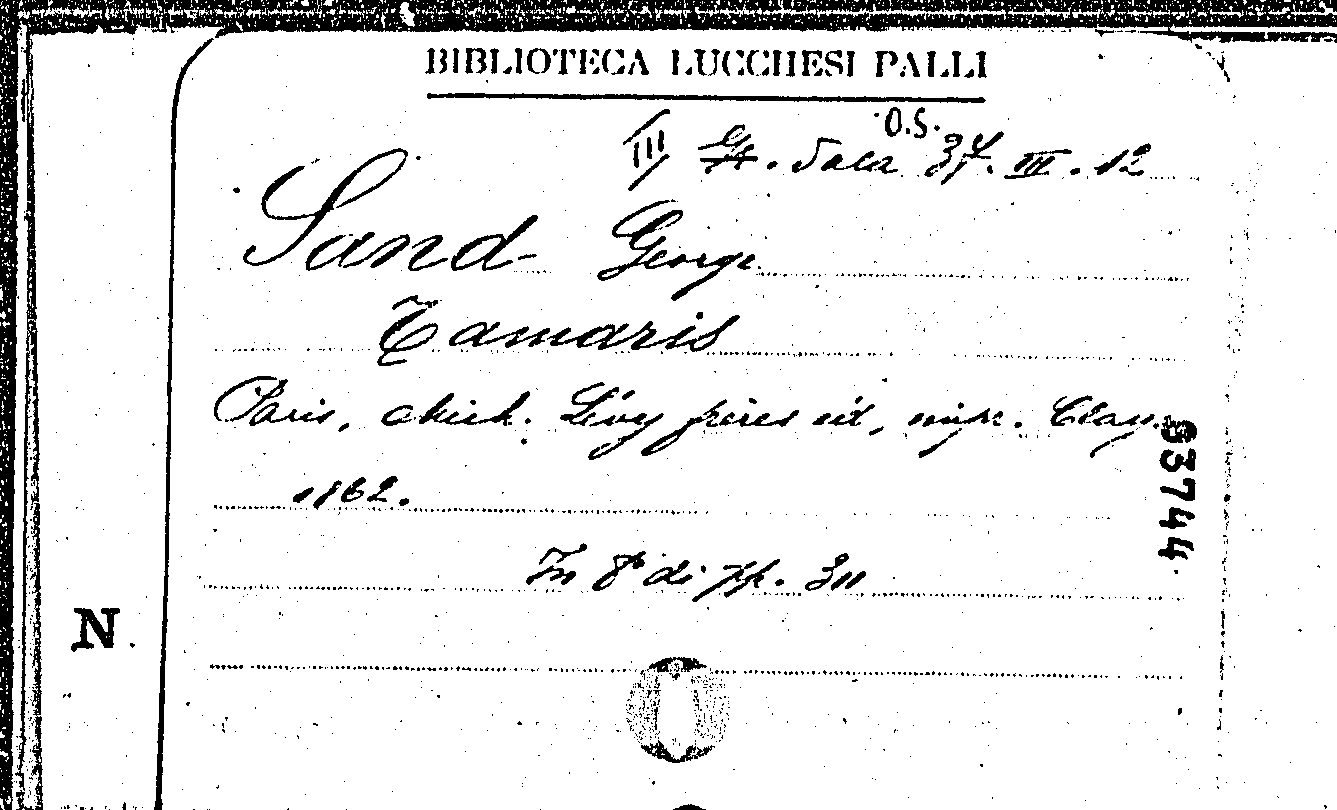 BIBLIOTECA LUCCHESI PALLI
O.S.
III Sala 37. III. 12
Sand George
Tamaris
Paris, Mich. Lévy frères éd, impr. Claye.
1862.
In 8° di pp. 311
63744
N.